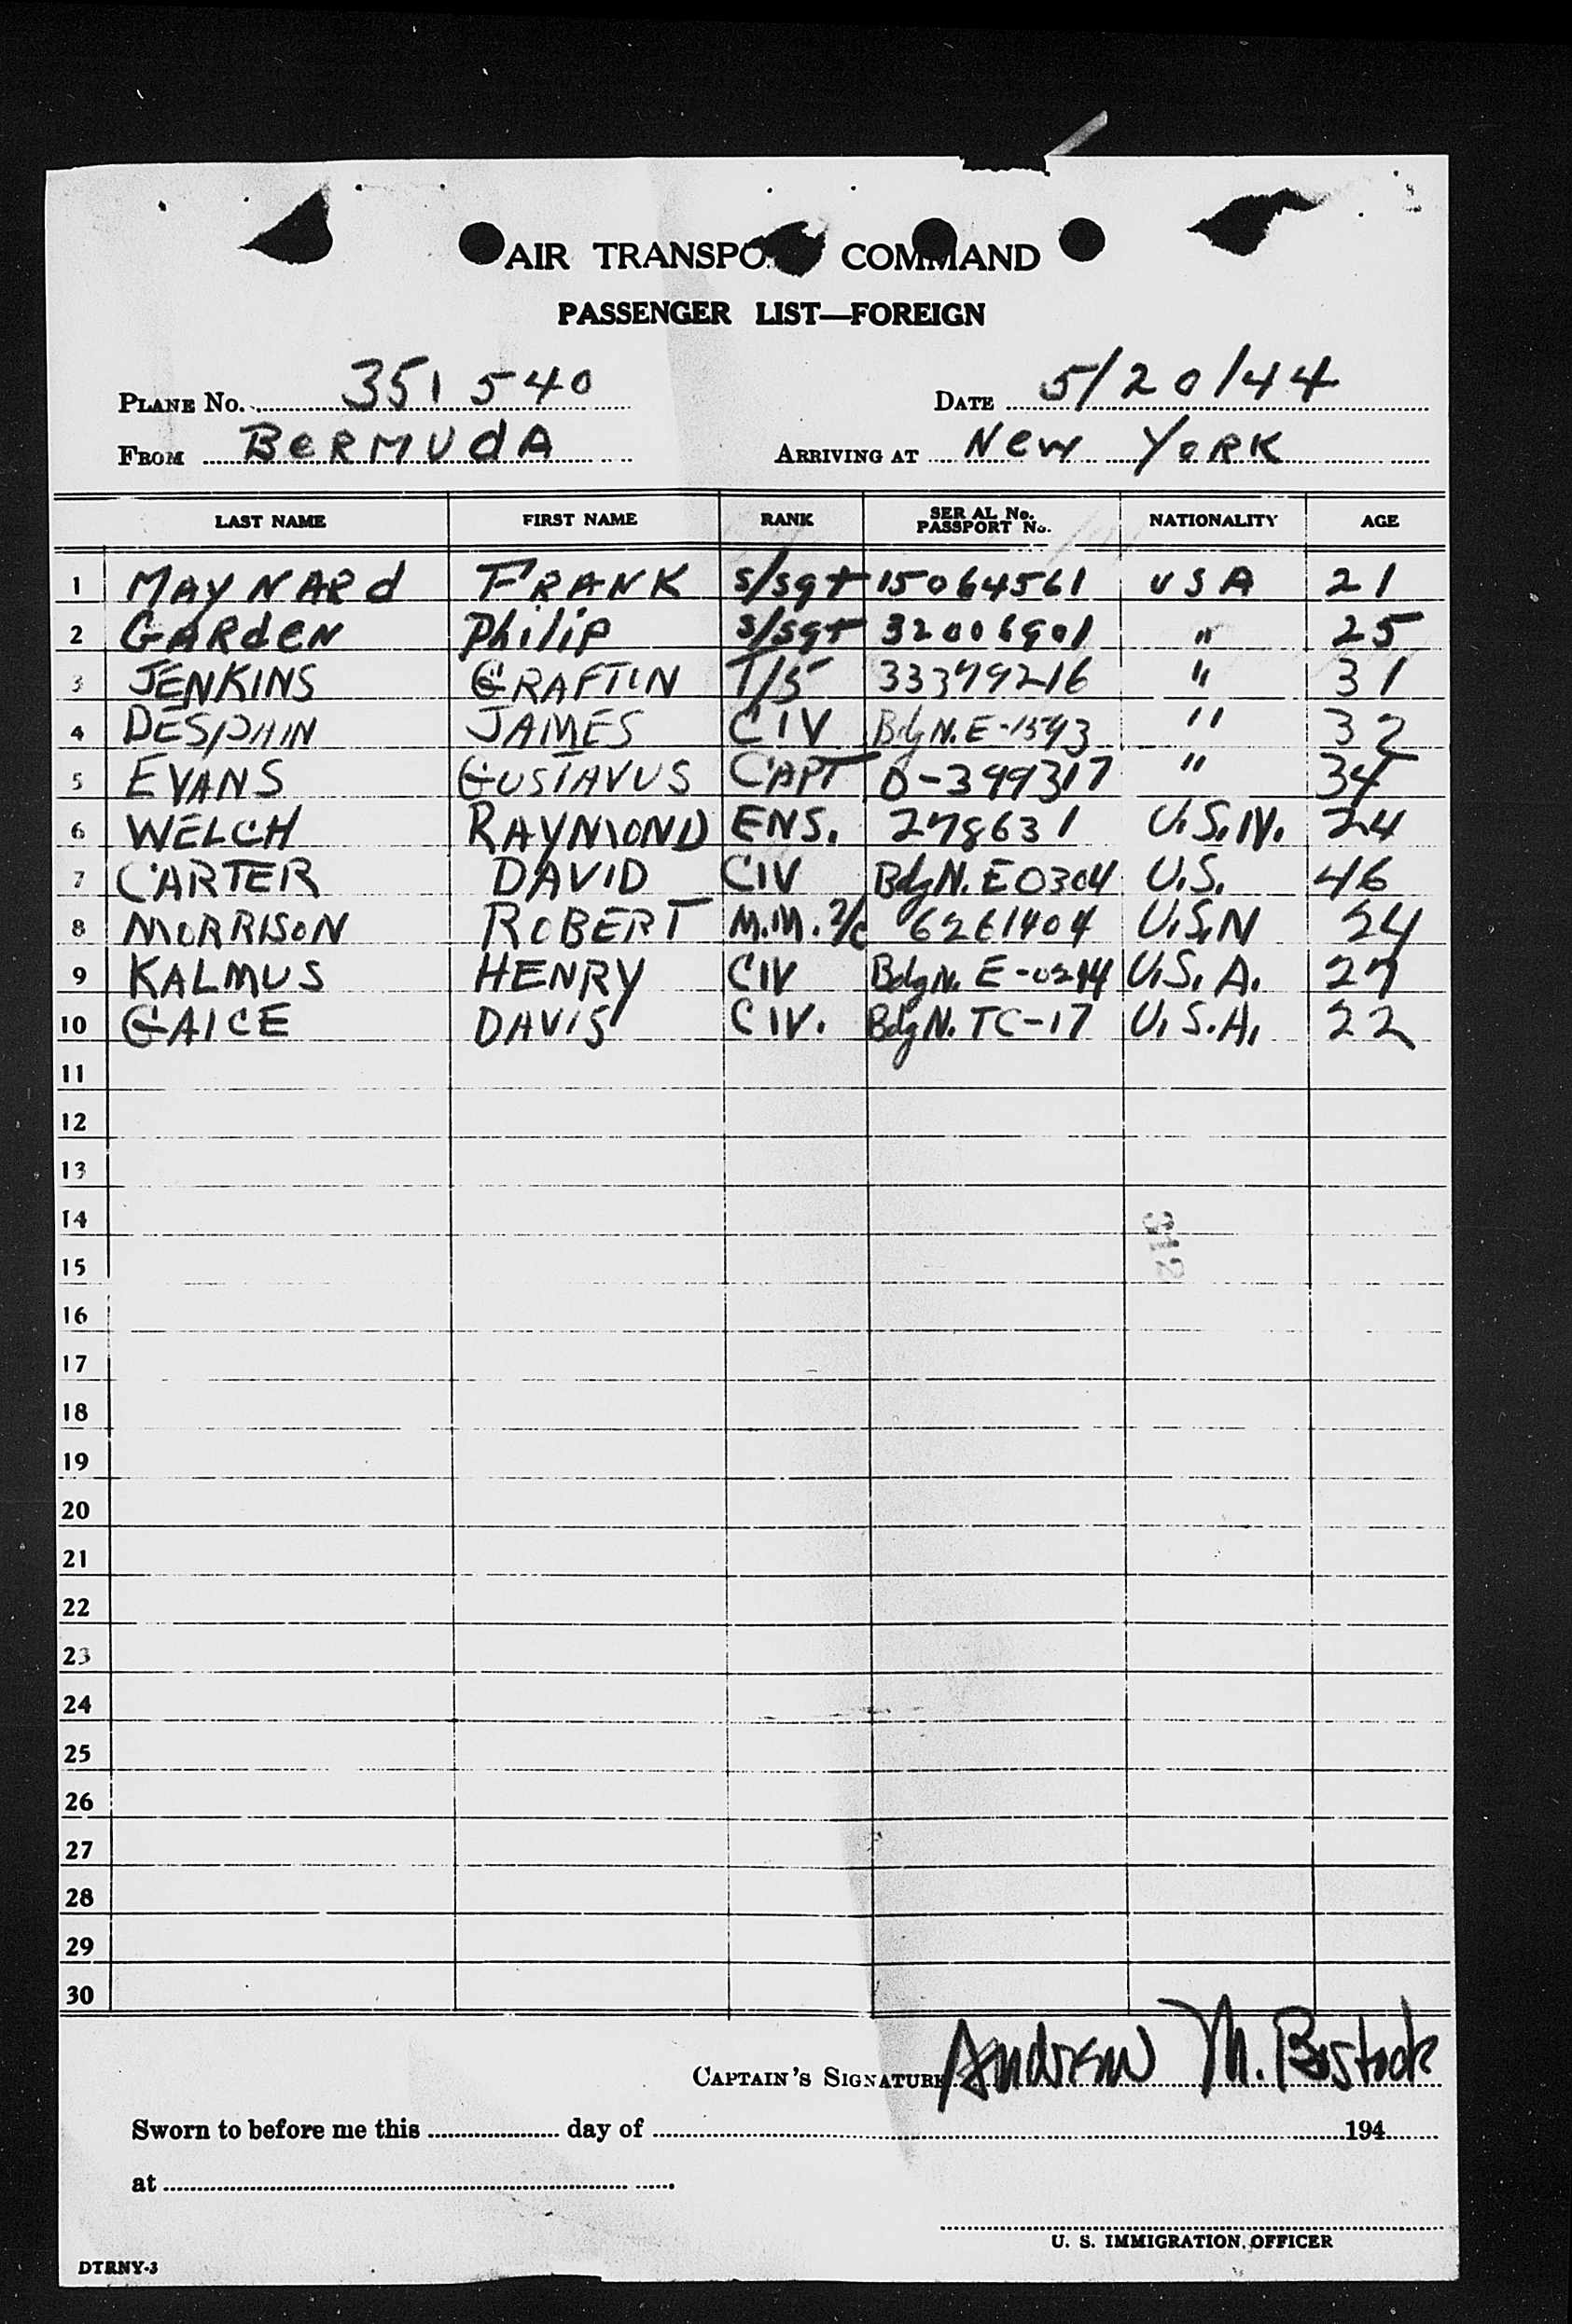 AIR TRANSPO COMMAND
PASSENGER LIST—FOREIGN
PLANE No. 351540 DATE 5/20/44
FROM BERMUDA ARRIVING AT NEW YORK
LAST NAME FIRST NAME RANK SER AL No. PASSPORT No. NATIONALITY AGE
1 MAYNARd FRANK S/Sgt 15064561 USA 21
2 GARdeN Philip S/Sgt 32006901 " 25
3 JENKINS GRAFTIN T/5 33379216 " 31
4 DESPAIN JAMES CIV BdgN.E-1593 " 32
5 EVANS GUSTAVUS CAPT O-399317 " 34
6 WELCH RAYMOND ENS. 278631 U.S.N. 24
7 CARTER DAVID CIV BdgN.E0304 U.S. 46
8 MORRISON ROBERT M.M. 2/c 6261404 U.S.N 24
9 KALMUS HENRY CIV BdgN. E-0244 U.S.A. 27
10 GAICE DAVIS CIV. BdgN.TC-17 U.S.A. 22
11
12
13
14
312
15
16
17
18
19
20
21
22
23
24
25
26
27
28
29
30
CAPTAIN'S SIGNATURE Andrew M. Bostock
Sworn to before me this day of 194
at
U. S. IMMIGRATION OFFICER
DTRNY-3